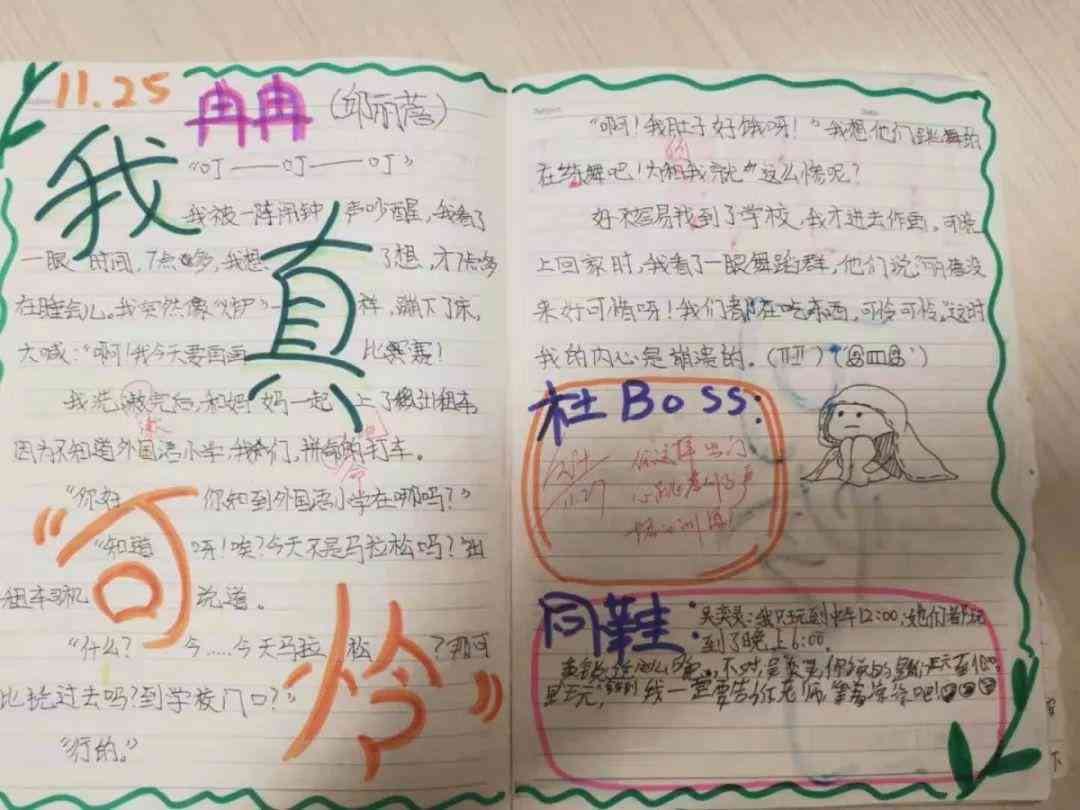 11.25
冉冉（邱丽蓓）
我真可怜
“叮——叮——叮”
我被一阵闹钟声吵醒，我看了
一眼时间，7点多，我想了想，才7点多
在睡会儿。我突然像“火炉”一样，蹦下了床，
大喊：“啊！我今天要画画比赛！
我洗漱完后，和妈妈一起上了出租车，
因为不知道外国语小学，我们，拼命的打车。
“你好 你知到外国语小学在哪吗？”
“知道呀！唉？今天不是马拉松吗？”出
租车司机说道。
“什么？今……今天马拉松？那可
比绕过去吗？到学校门口？”
“行的。”
“啊！我肚子好饿呀！”我想他们跳舞的
在练舞吧！为啥我就这么惨呢？
好不容易找到了学校，我才进去作画，可晚
上回家时，我看了一眼舞蹈群，他们说丽蓓没
来好可惜呀！我们都在吃东西，可怜可怜。这时
我的内心是崩溃的。
杜Boss：
11.27
同鞋：
吴奕灵：我只玩到中午12:00，她们都玩
到了晚上6:00。
不对，吴奕灵，你
我一定要告